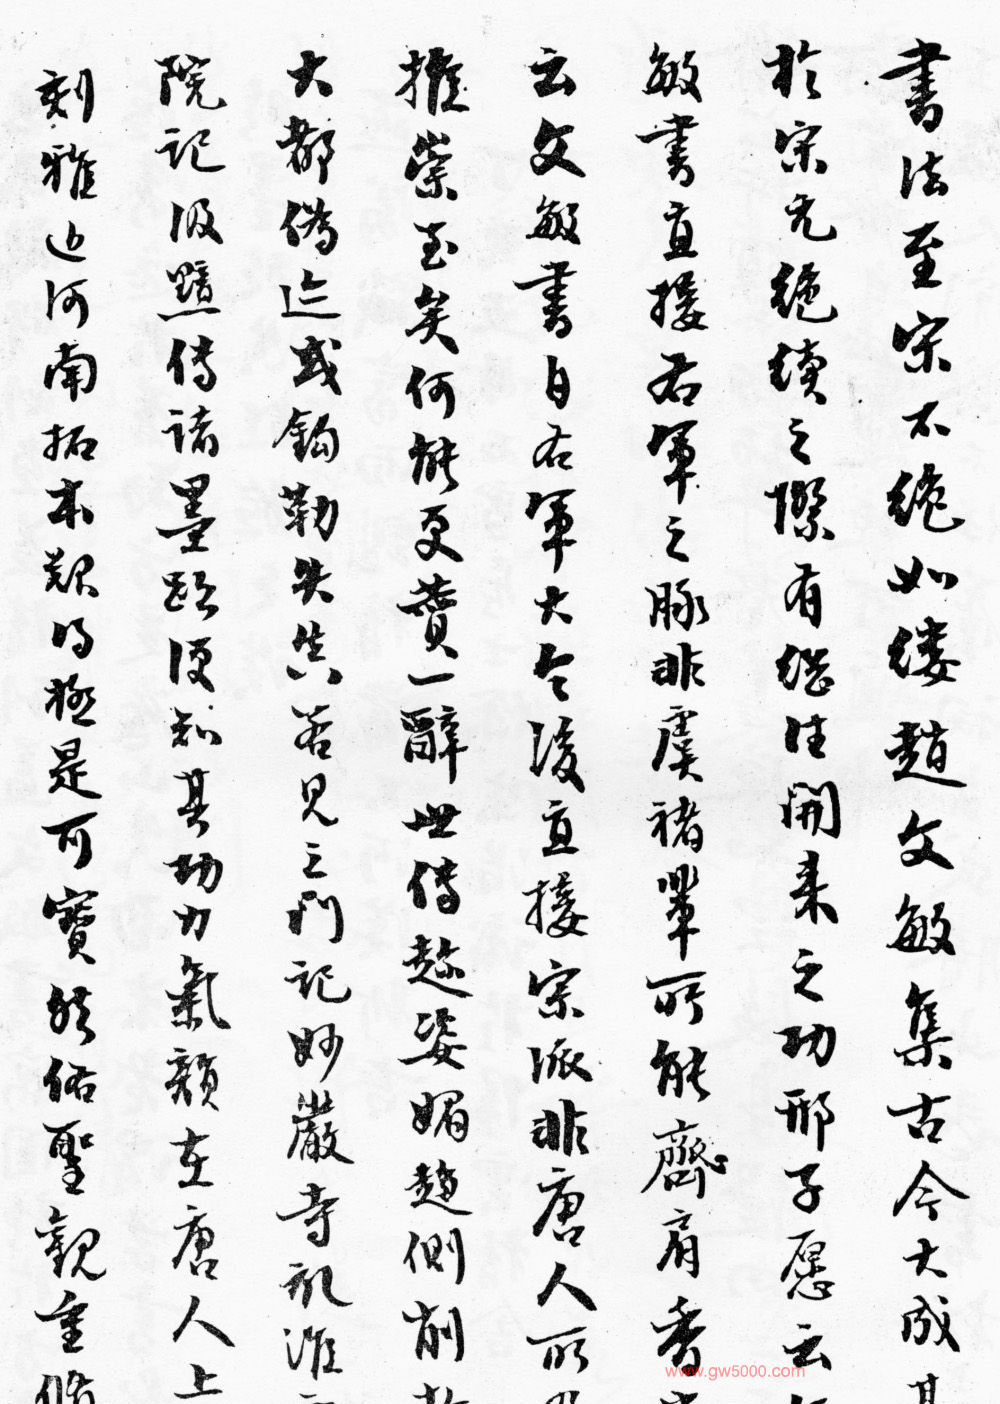 書法至宋不絶如縷趙文敏集古今大成其
於宋元絶續之際有繼往開来之功邢子愿云
敏書直接右軍之脉非虞褚輩所能齊肩香
云文敏書自右軍大令後直接宗派非唐人所
推崇至矣何能更費一辭世傳趙姿媚趙側削
大都偽迹或鈎勒失真若見三門記妙嚴寺記淮
院記汲黯傳諸墨跡便知其功力氣韻在唐人上
刻雅近河南拓本清極是可寶然佑聖觀重脩
www.gw5000.com